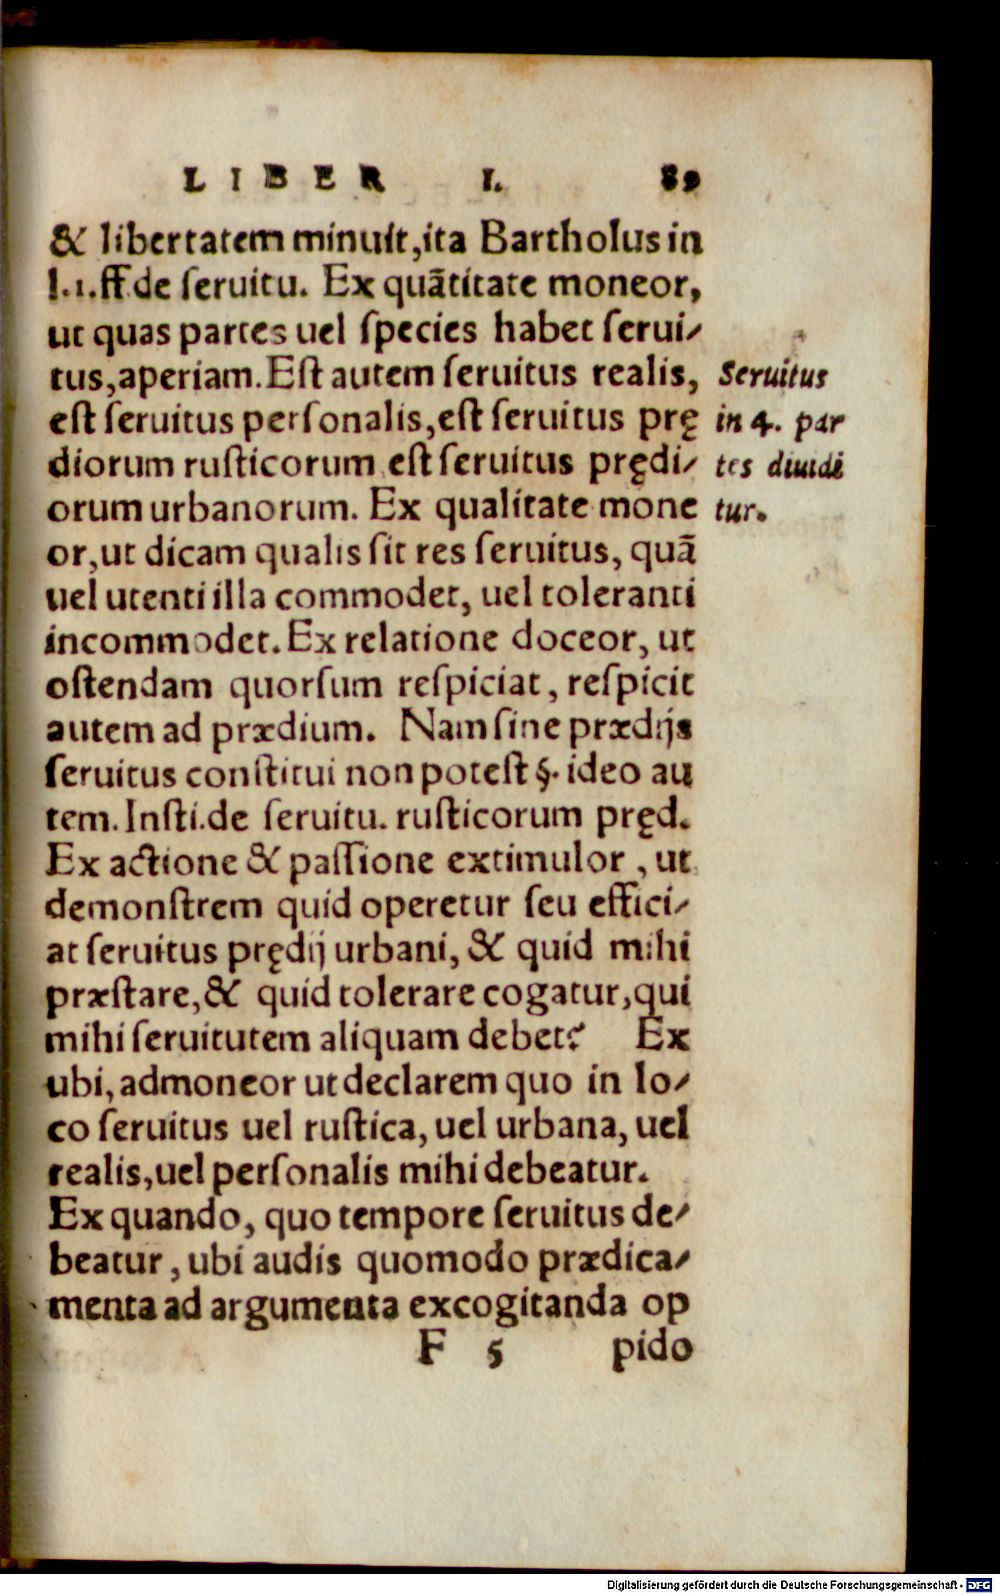 LIBER I. 89
& libertatem minuit,ita Bartholus in
l.1.ff.de ſeruitu. Ex quãtitate moneor,
ut quas partes uel ſpecies habet ſerui⸗
tus,aperiam.Eſt autem ſeruitus realis,
eſt ſeruitus perſonalis,eſt ſeruitus prę
diorum ruſticorum eſt ſeruitus prędi⸗
orum urbanorum. Ex qualitate mone
or,ut dicam qualis ſit res ſeruitus, quã
uel utenti illa commodet, uel toleranti
incommodet. Ex relatione doceor, ut
oſtendam quorſum reſpiciat, reſpicit
autem ad prædium. Nam ſine prædijs
ſeruitus conſtitui non poteſt §. ideo au
tem. Inſti.de ſeruitu. ruſticorum pręd.
Ex actione & paſſione extimulor, ut
demonſtrem quid operetur ſeu effici⸗
at ſeruitus prędij urbani, & quid mihi
præſtare,& quid tolerare cogatur,qui
mihi ſeruitutem aliquam debet? Ex
ubi, admoneor ut declarem quo in lo⸗
co ſeruitus uel ruſtica, uel urbana, uel
realis,uel perſonalis mihi debeatur.
Ex quando, quo tempore ſeruitus de⸗
beatur, ubi audis quomodo prædica⸗
menta ad argumenta excogitanda op
F 5 pido
Seruitus
in 4. par
tes diuidi
tur.
Digitalisierung gefördert durch die Deutsche Forschungsgemeinschaft - DFG